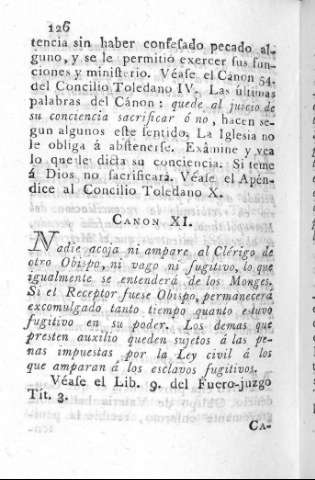 126
tencia sin haber confesado pecado al-
guno, y se le permitió exercer sus fun-
ciones y ministerio. Véase el Cánon 54.
del Concilio Toledano IV. Las últimas
palabras del Cánon: quede al juicio de
su conciencia sacrificar ó no, hacen se-
gun algunos este sentido. La Iglesia no
le obliga á abstenerse. Exâmine y vea
lo que le dicta su conciencia. Si teme
á Dios no sacrificará. Véase el Apén-
dice al Concilio Toledano X.
CANON XI.
Nadie acoja ni ampare al Clérigo de
otro Obispo, ni vago ni fugitivo, lo que
igualmente se entenderá de los Monges.
Si el Receptor fuese Obispo, permanecerá
excomulgado tanto tiempo quanto estuvo
fugitivo en su poder. Los demas que
presten auxîlio queden sujetos á las pe-
nas impuestas por la Ley civil á los
que amparan á los esclavos fugitivos.
Véase el Lib. 9. del Fuero-juzgo
Tit. 3.
CA-